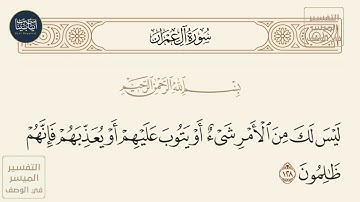 التفسير
الميسر
سُورَةُ آلِ عِمْرَانَ
بِسْمِ اللَّهِ الرَّحْمَٰنِ الرَّحِيمِ
لَيْسَ لَكَ مِنَ ٱلْأَمْرِ شَىْءٌ أَوْ يَتُوبَ عَلَيْهِمْ أَوْ يُعَذِّبَهُمْ فَإِنَّهُمْ
ظَٰلِمُونَ ١٢٨
التفسير
الميسر
في الوصف